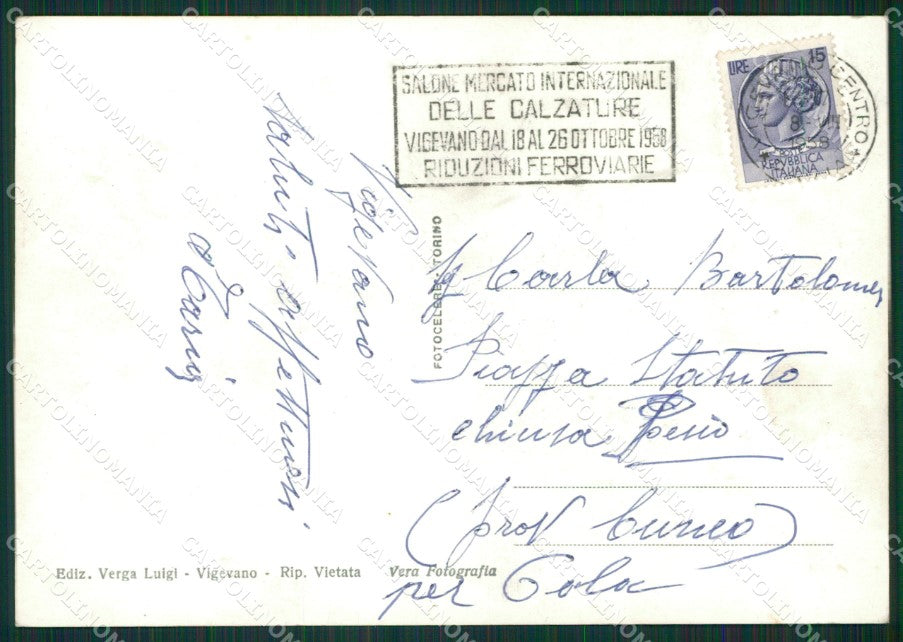 SALONE MERCATO INTERNAZIONALE
DELLE CALZATURE
VIGEVANO DAL 18 AL 26 OTTOBRE 1958
RIDUZIONI FERROVIARIE
LIRE 15
POSTE
REPVBBLICA
ITALIANA
CENTRO
Vigevano
Saluti affettuosi
FOTOCELERE - TORINO
Carla Bartolomei
Piazza Statuto
Chiusa Pesio
(Prov Cuneo)
per Cola
Ediz. Verga Luigi - Vigevano - Rip. Vietata Vera Fotografia
CARTOLINOMANIA